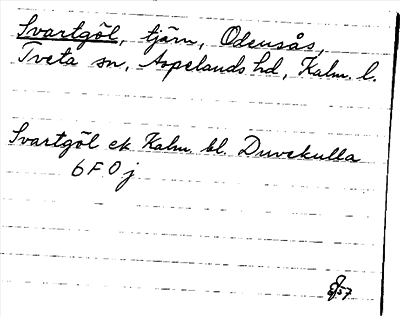 Svartgöl, tjärn, Odensås,
Tveta sn, Aspelands hd, Kalm. l.
Svartgöl ek Kalm. bl. Duvekulla
6 F 0 j